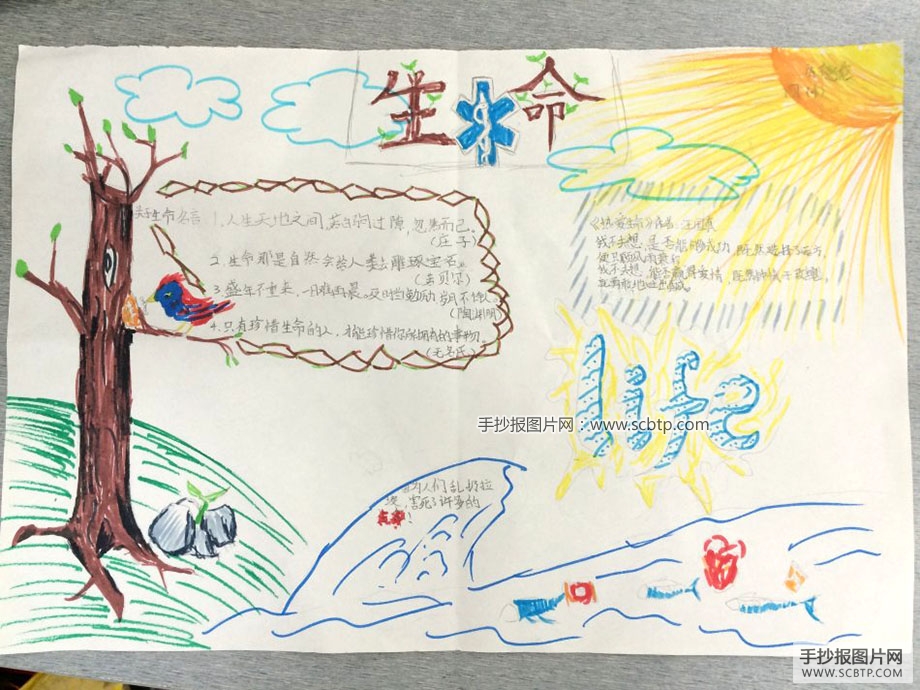 生命
关于生命名言:1.人生天地之间,若白驹过隙,忽然而已。
(庄子)
2.生命那是自然会给人类去雕琢宝石。
3.盛年不重来,一日难再晨。及时当勉励,岁月不待人。
(陶渊明)
4.只有珍惜生命的人,才能珍惜你所拥有的事物。
(无名氏)
《热爱生命》作者:汪国真
我不去想,是否能够成功,既然选择了远方,
便只顾风雨兼程
我不去想,能否赢得爱情,既然钟情于玫瑰,
life
手抄报图片网:www.scbtp.com
因为人们乱扔垃
圾,害死了许多的
手抄报图片网
WWW.SCBTP.COM